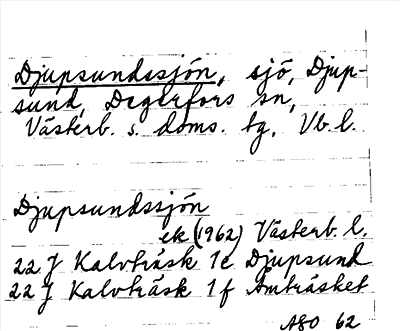 Djupsundssjön, sjö, Djup-
sund, Degerfors sn,
Västerb. s. doms. tg, Vb. l.
Djupsundssjön
ek (1962) Västerb. l.
22 J Kalvträsk 1e Djupsund
22 J Kalvträsk 1f Åmträsket
ASO 62